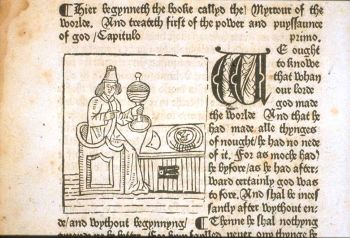 Hier begynneth the booke callyd the Myrrour of the
worlde. And treateth first of the power and puyssaunce
of god / Capitulo primo.
WE ought
to knowe
that whan
our lord
god made
the worlde And that he
had made alle thynges
of nought / he had no nede
of it. For as moche had
he byfore / as he had after
ward certainly god was
to fore. And shal be inces
santly after wythout en=
de / and wythout begynnyng /
Therine he shal nothyng